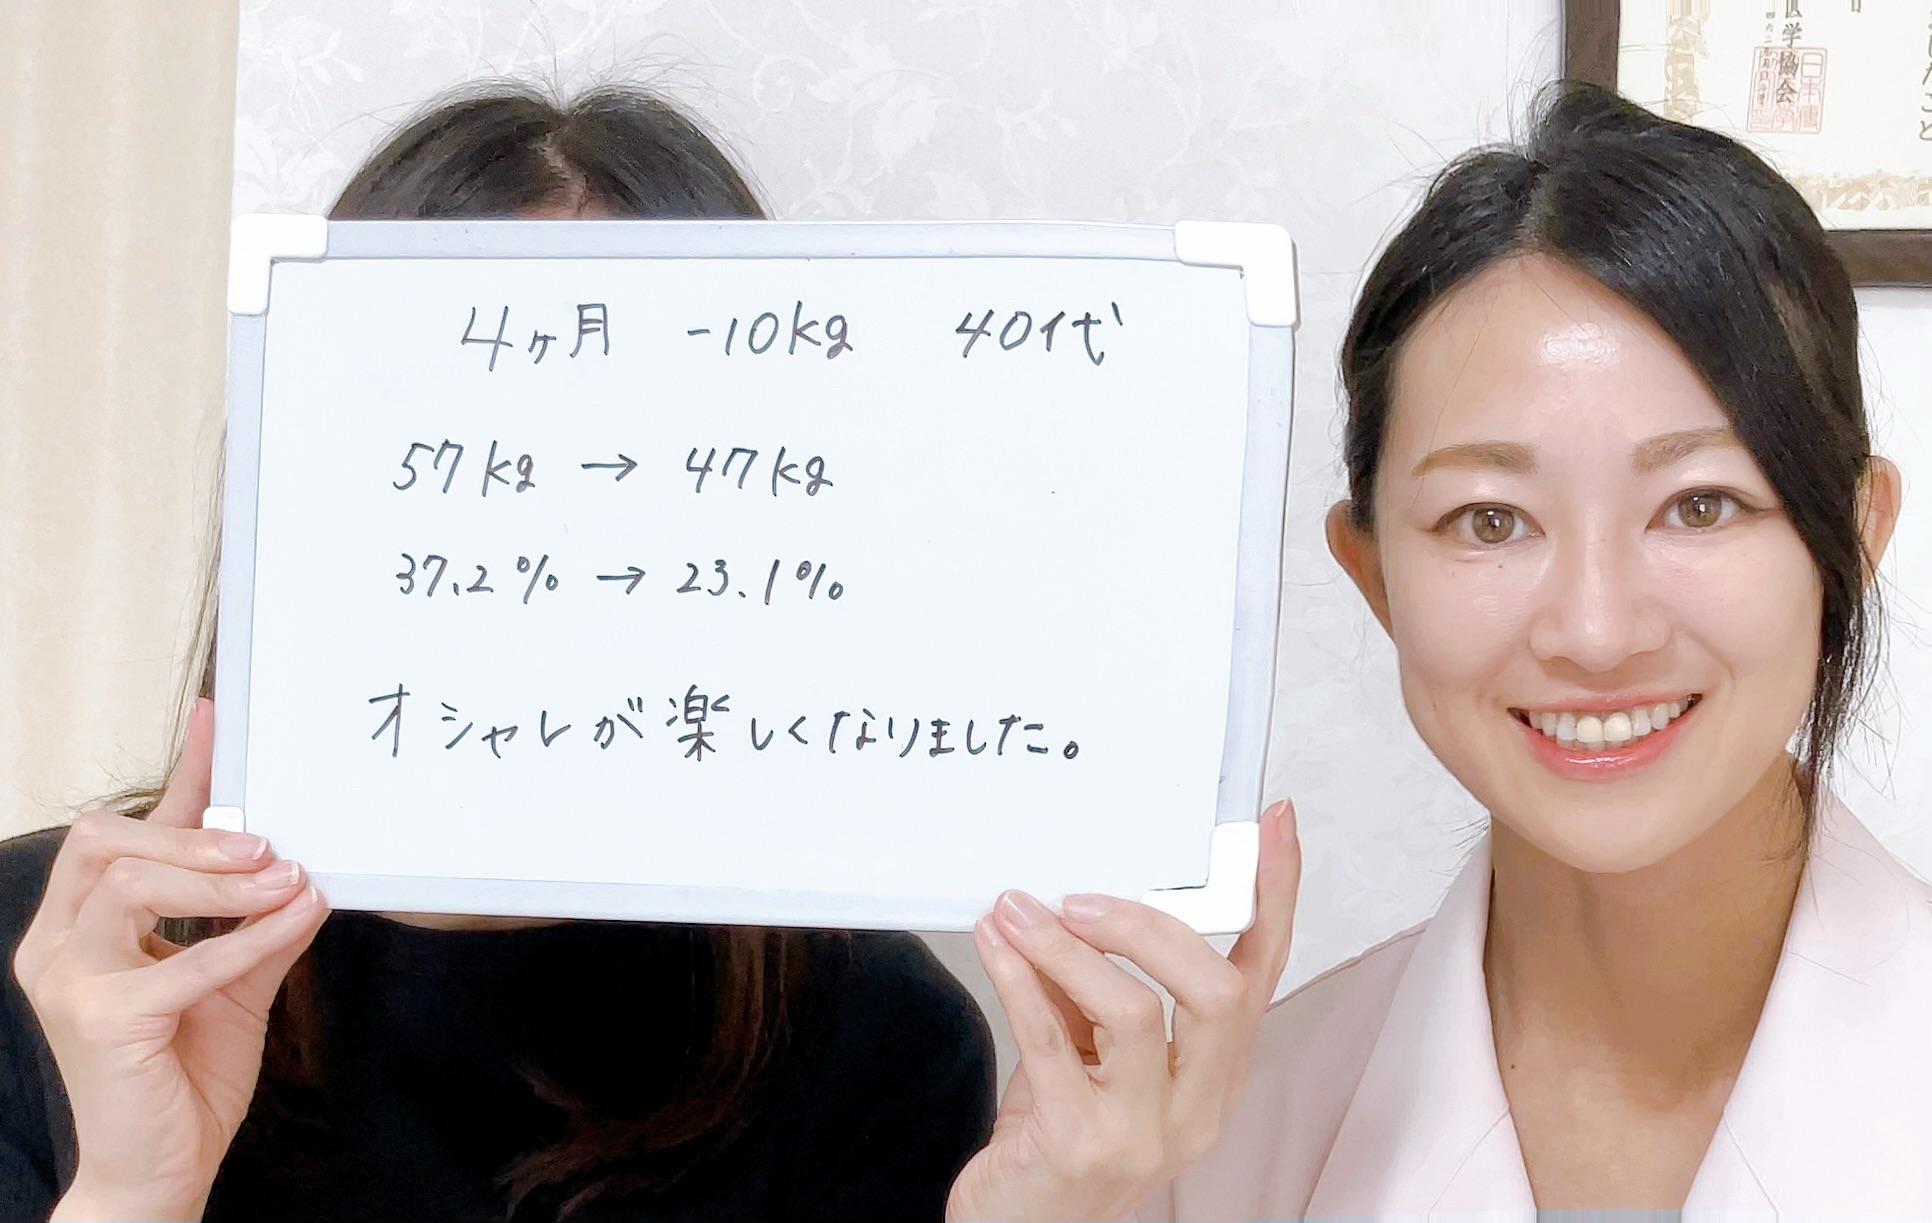 4ヶ月 -10kg 40代
57kg → 47kg
37.2% → 23.1%
オシャレが楽しくなりました。
学協会